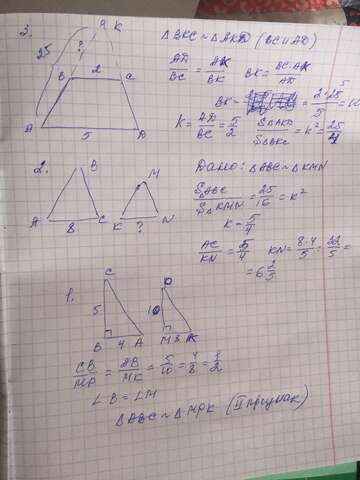 3.
9 K
25
?
B 2 C
A 5 D
△BKC ~ △AKD (BC ∥ AD)
AD/BC = AK/BK BK = BC·AK/AD
BK = 2·25/5 = 10
K = AD/BC = 5/2 S△AKD/S△BKC = K² = 25/4
2.
B M
A 8 C K ? N
Дано: △ABC ~ △KMN
S△ABC/S△KMN = 25/16 = K²
K = 5/4
AC/KN = 5/4 KN = 8·4/5 = 32/5 =
= 6 2/5
1.
C
5 10
B 4 A M 8 K
CB/MP = AB/MK = 5/10 = 4/8 = 1/2
∠B = ∠M
△ABC ~ △MPK (II признак)